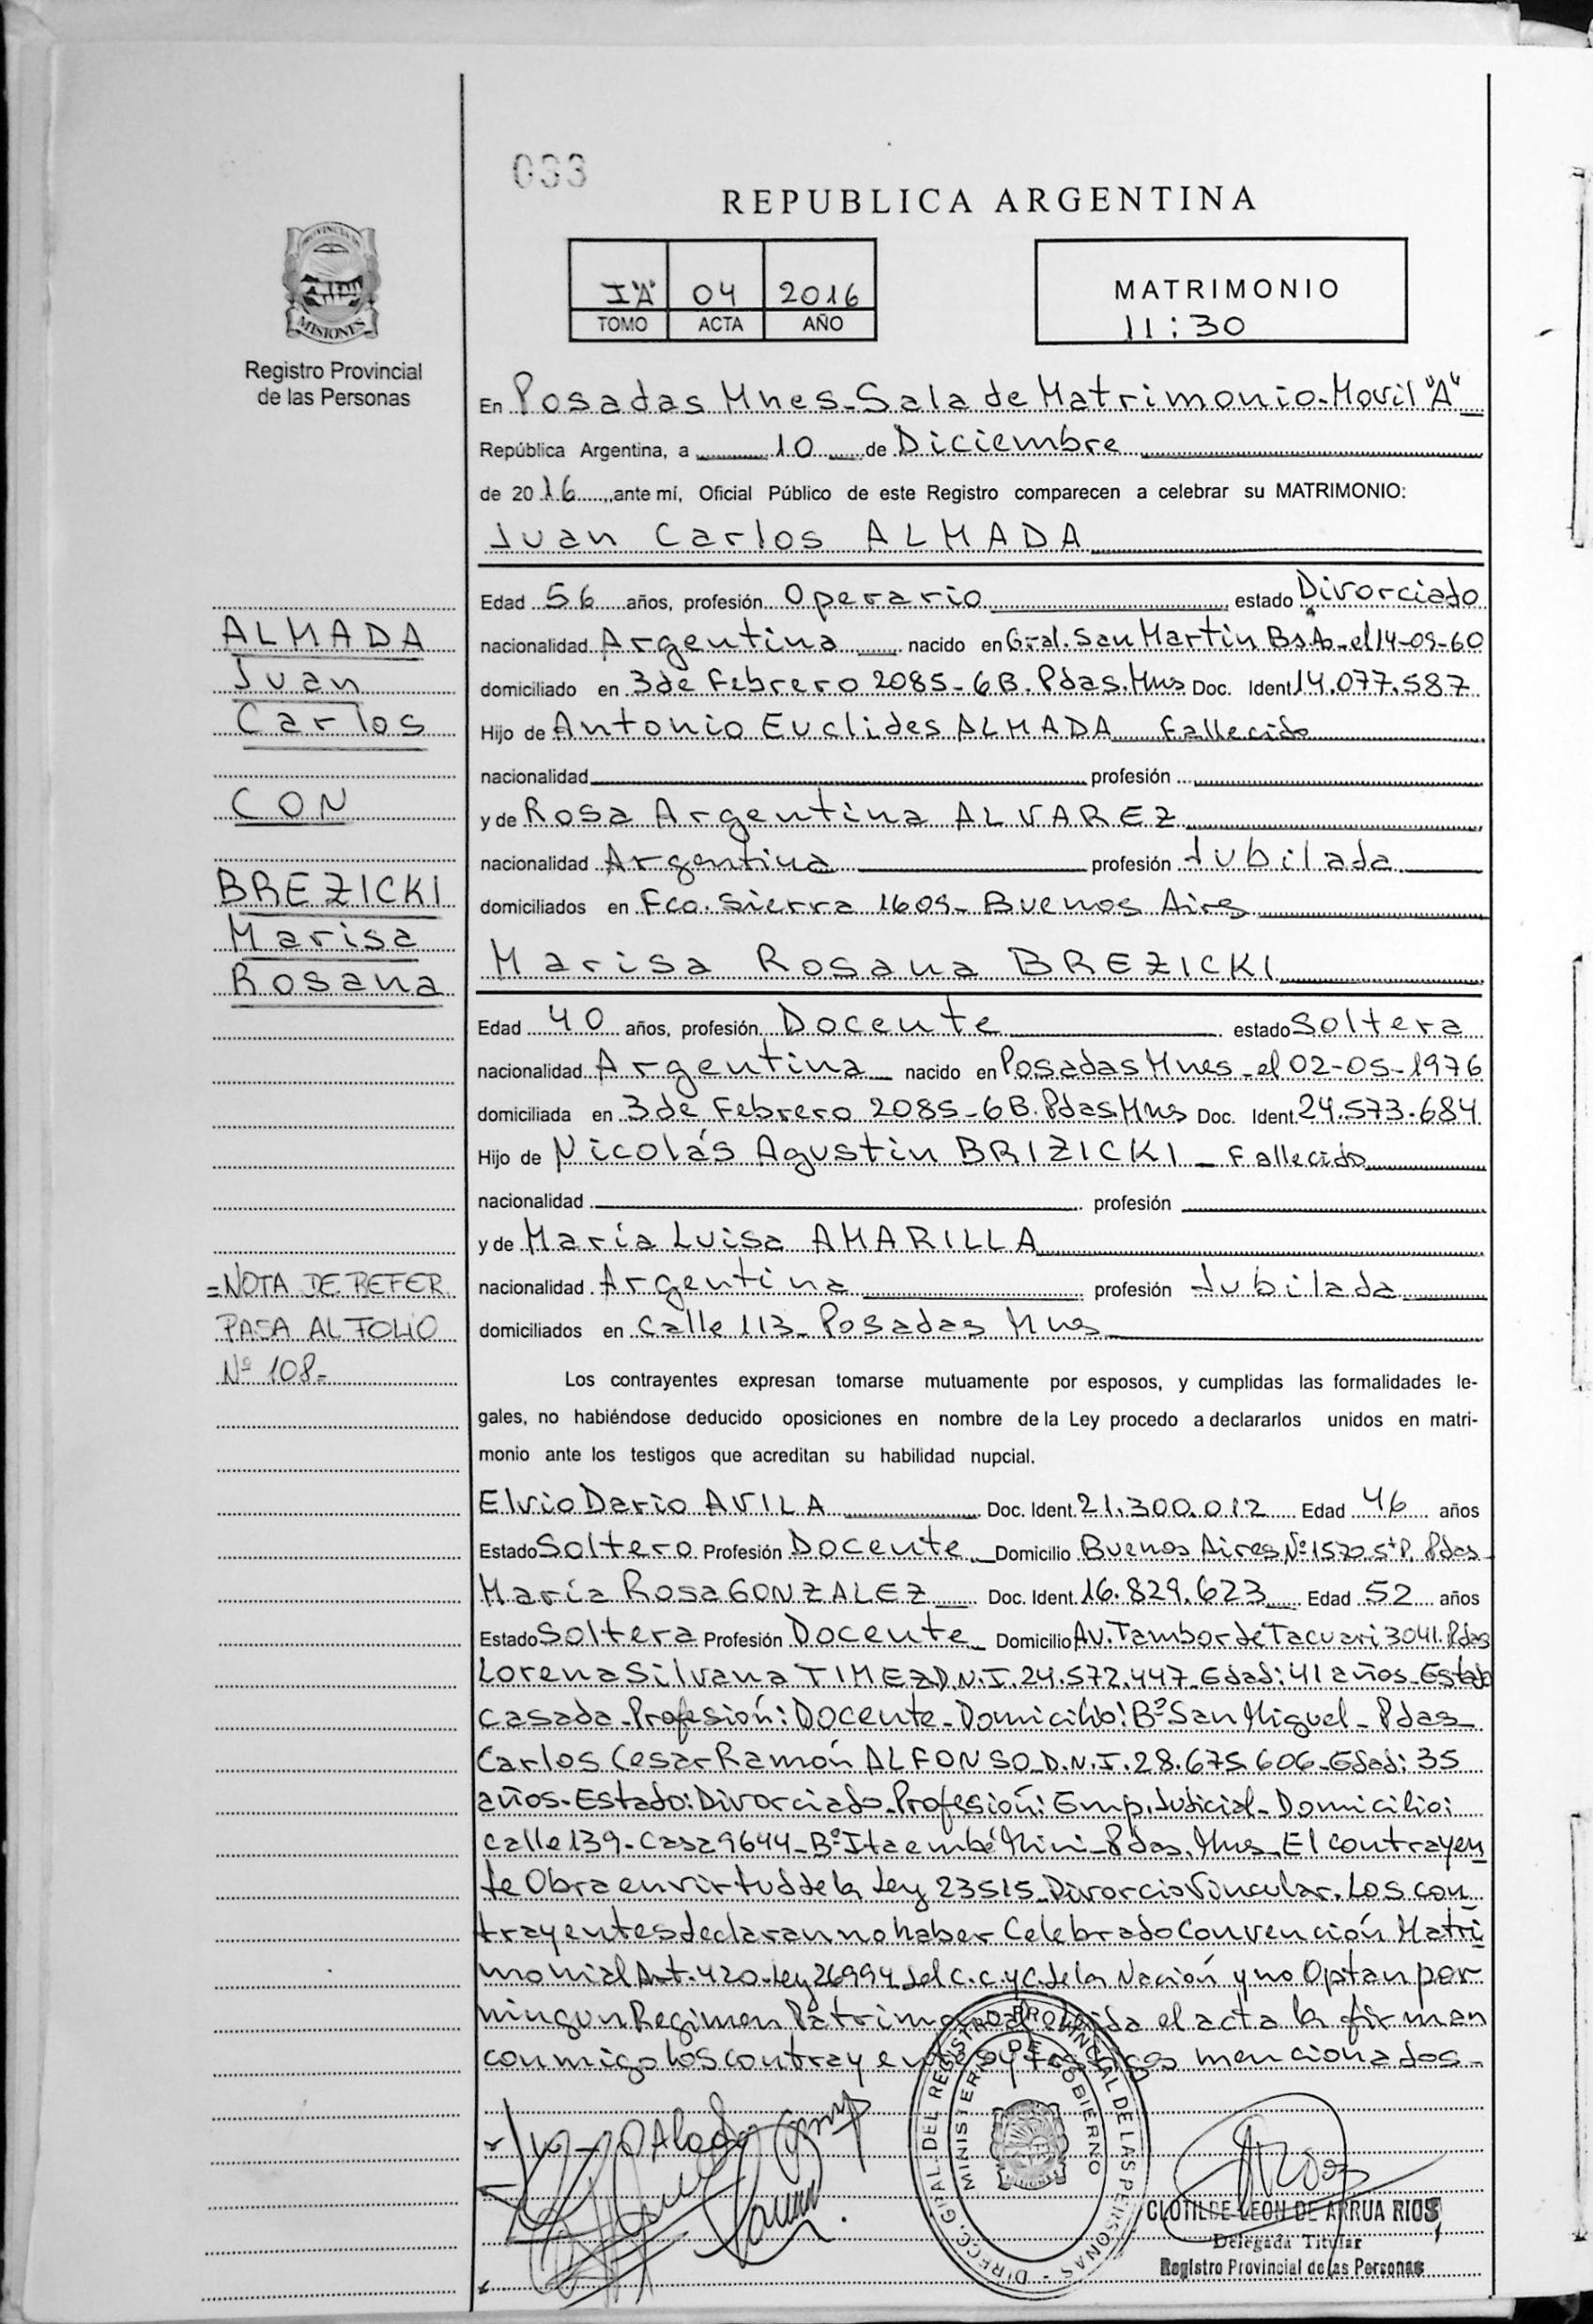 033
REPUBLICA ARGENTINA
PROVINCIA DE
MISIONES
Registro Provincial
de las Personas
I"A" 04 2016
TOMO ACTA AÑO
MATRIMONIO
11:30
En Posadas Mnes-Sala de Matrimonio-Movil "A"
República Argentina, a 10 de Diciembre
de 2016, ante mí, Oficial Público de este Registro comparecen a celebrar su MATRIMONIO:
Juan Carlos ALMADA
Edad 56 años, profesión Operario estado Divorciado
nacionalidad Argentina nacido en Gral. San Martin Bs.As-el 14-09-60
domiciliado en 3 de Febrero 2085-6B. Pdas. Mns Doc. Ident 14.077.587
Hijo de Antonio Euclides ALMADA Fallecido
nacionalidad profesión
y de Rosa Argentina ALVAREZ
nacionalidad Argentina profesión Jubilada
domiciliados en Fco. Sierra 1609- Buenos Aires
Marisa Rosana BREZICKI
Edad 40 años, profesión Docente estado Soltera
nacionalidad Argentina nacido en Posadas Mnes-el 02-05-1976
domiciliada en 3 de Febrero 2085-6B. Pdas. Mns Doc. Ident. 24.573.684
Hijo de Nicolás Agustin BRIZICKI - Fallecido
nacionalidad profesión
y de María Luisa AMARILLA
nacionalidad Argentina profesión Jubilada
domiciliados en Calle 113- Posadas Mns
Los contrayentes expresan tomarse mutuamente por esposos, y cumplidas las formalidades le-
gales, no habiéndose deducido oposiciones en nombre de la Ley procedo a declararlos unidos en matri-
monio ante los testigos que acreditan su habilidad nupcial.
Elvio Dario AVILA Doc. Ident. 21.300.012 Edad 46 años
Estado Soltero Profesión Docente Domicilio Buenos Aires Nº1570.5ºP. Pdas
María Rosa GONZALEZ Doc. Ident. 16.829.623 Edad 52 años
Estado Soltera Profesión Docente Domicilio AV. Tambor de Tacuari 3041. Pdas
Lorena Silvana TIMEZ D.N.I. 24.572.447-Edad: 41 años-Estado
casada-Profesión: Docente-Domicilio: Bº San Miguel-Pdas-
Carlos Cesar Ramón ALFONSO-D.N.I. 28.675.606-Edad: 35
años-Estado: Divorciado-Profesión: Emp. Judicial-Domicilio:
calle 139-Casa 9644-Bº Itaembé Mini-Pdas. Mns. El contrayen
te Obra en virtud de la Ley 23515-Divorcio Vincular. Los con
trayentes declaran no haber Celebrado Convención Matri
monial Art. 420-Ley 26994 del C.C. y C. de la Nación y no Optan por
ningun Regimen Patrimonial. Leida el acta la firman
conmigo los contrayentes y testigos mencionados-
ALMADA
Juan
Carlos
CON
BREZICKI
Marisa
Rosana
=NOTA DE REFER
PASA AL FOLIO
Nº 108-
DIRECC. GRAL. DEL REGISTRO PROVINCIAL DE LAS PERSONAS
MINISTERIO DE GOBIERNO
CLOTILDE LEON DE ARRUA RIOS
Delegada Titular
Registro Provincial de las Personas